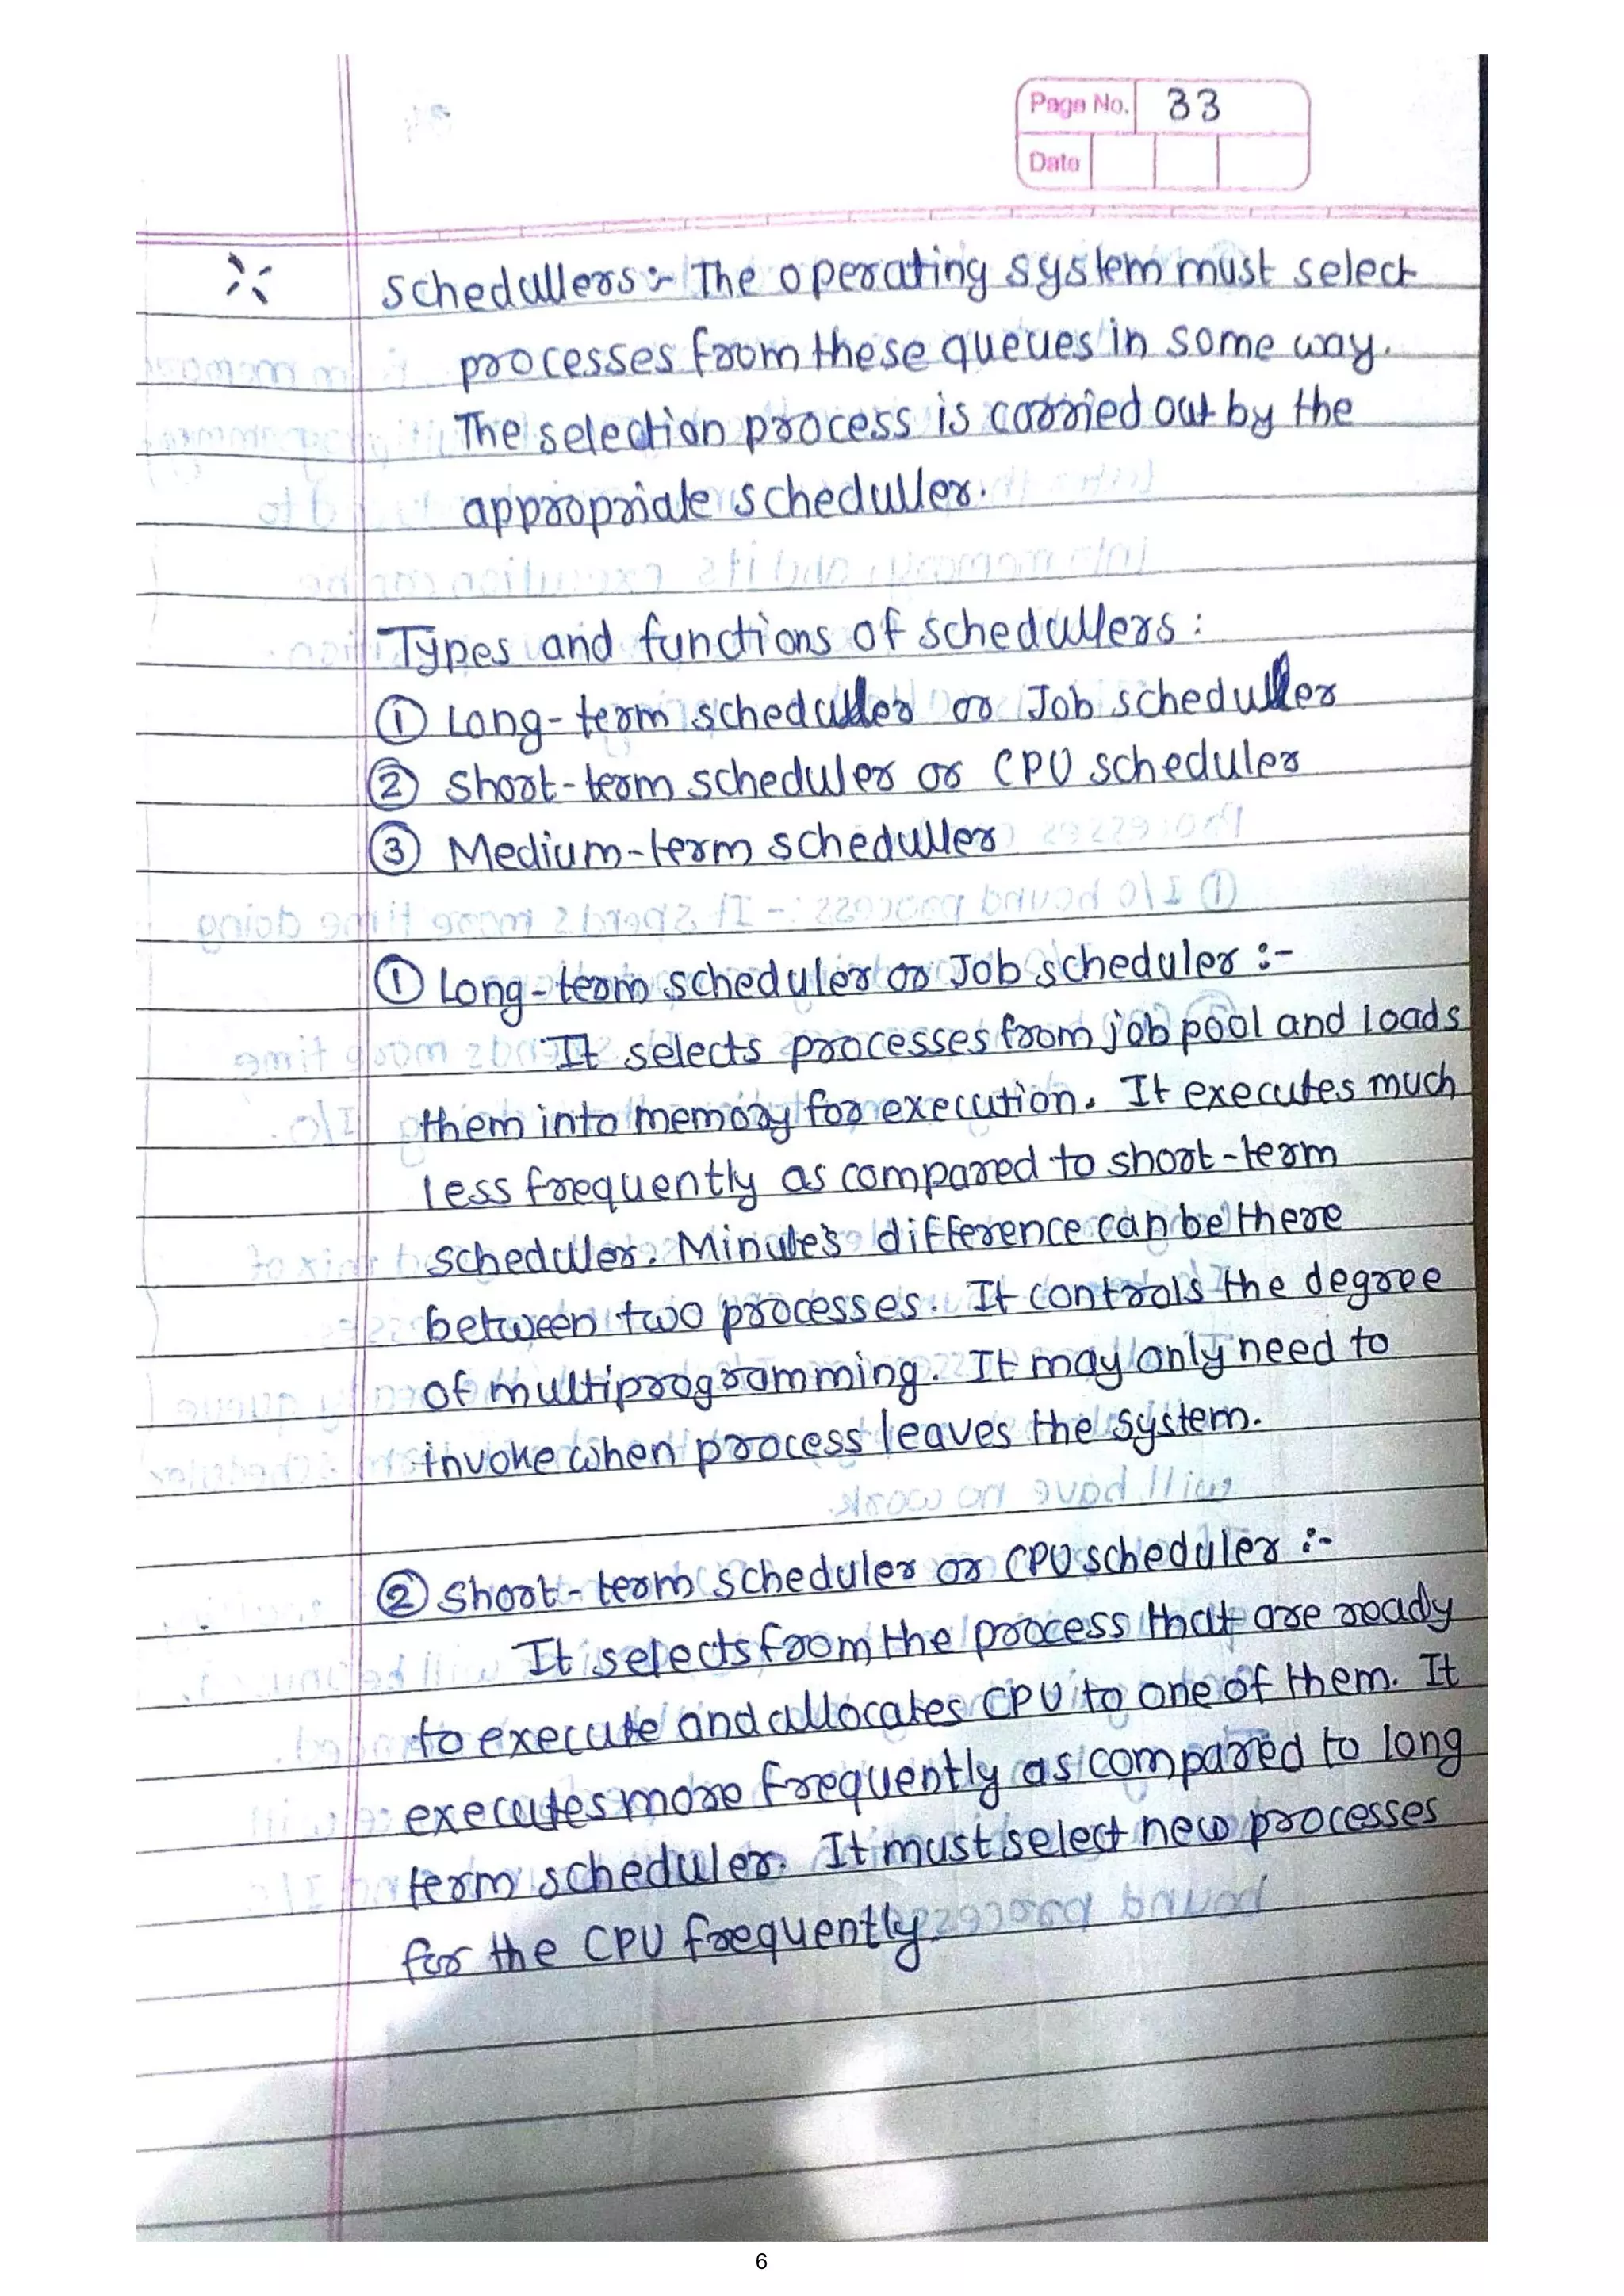 Page No. 33
Date
Schedullers :- The operating system must select
processes from these queues in some way.
The selection process is carried out by the
appropriate scheduller.
Types and functions of schedullers :
① Long-term scheduller or Job scheduller
② Short-term scheduler or CPU scheduler
③ Medium-term scheduller
① Long-term scheduler or Job scheduler :-
It selects processes from job pool and loads
them into memory for execution. It executes much
less frequently as compared to short-term
scheduller. Minute's difference can be there
between two processes. It controls the degree
of multiprogramming. It may only need to
invoke when process leaves the system.
② Short-term scheduler or CPU scheduler :-
It selects from the process that are ready
to execute and allocates CPU to one of them. It
executes more frequently as compared to long
term scheduler. It must select new processes
for the CPU frequently.
6